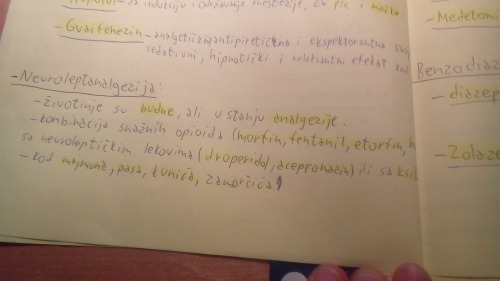 - za indukciju i održavanje anestezije, za pse i mačke
- Gvaifenezin - analgetička, antipiretična i ekspektorantna svoj
sedativni, hipnotički i relaksantni efekat kod
- Neuroleptanalgezija:
- životinje su budne, ali u stanju analgezije.
- kombinacija snažnih opioida (morfin, fentanil, etorfin,
sa neuroleptičkim lekovima (droperidol, acepromazin) ili sa ksil
- kod majmuna, pasa, kunića, zamorčića!
- Medetom
Benzodiaz
- diazep
- Zolaze